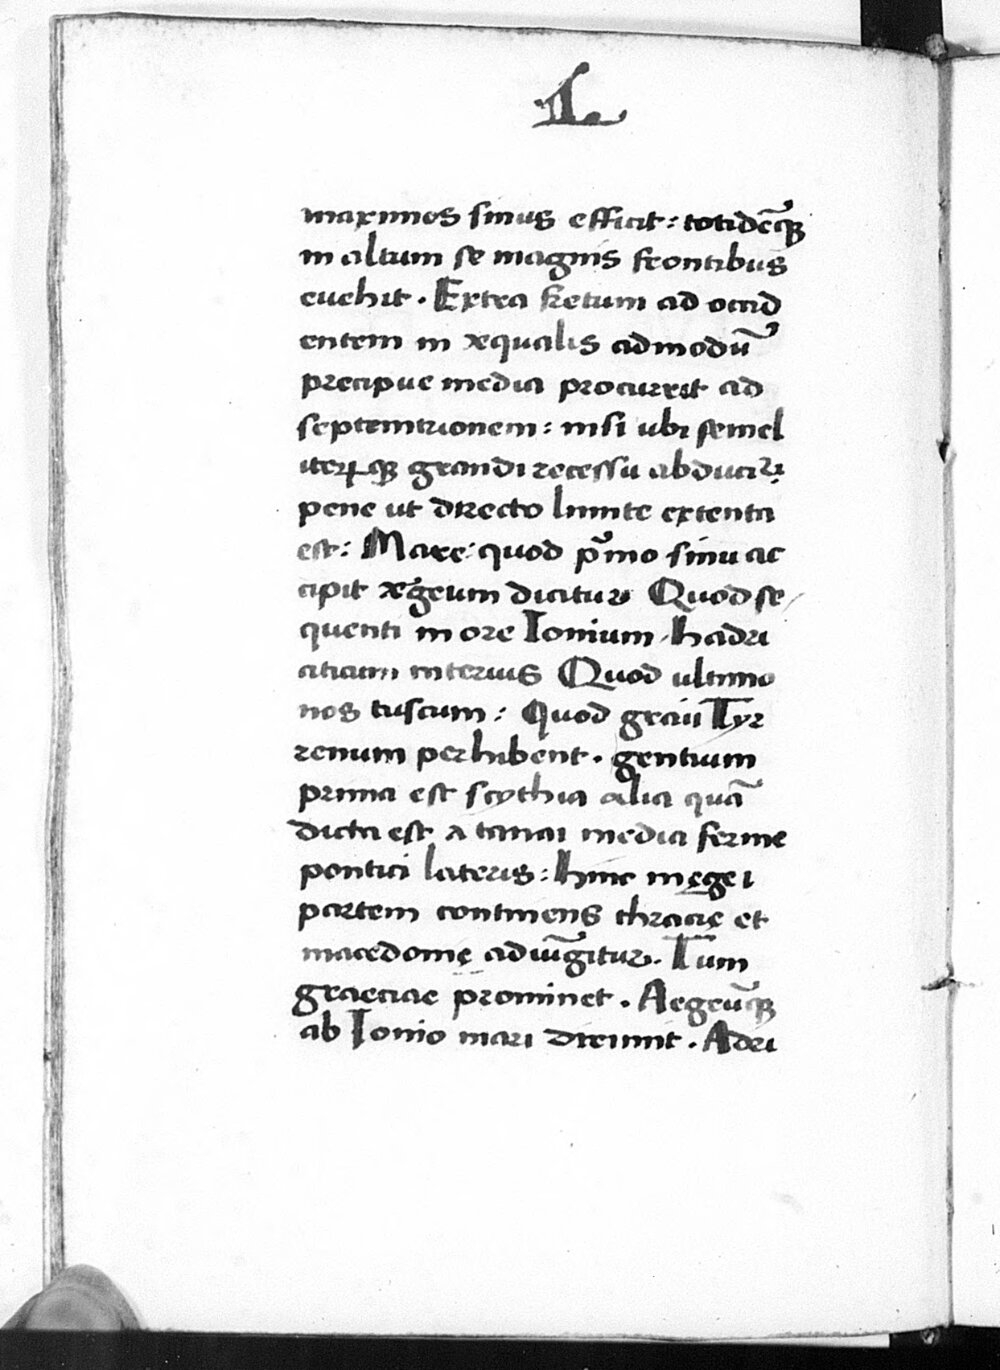 L
maximos sinus efficit: totidēq̃
in altum se magnis frontibus
euehit. Extra fretum ad occid
entem in æqualis admodū
precipue media procurrit ad
septemtrionem: nisi ubi semel
iteruq̃ grandi recessu abducit̃
pene ut directo limite extenta
est: Mare: quod p̃mo sinu ac
cipit ægeum dicitur Quod se
quenti in ore Ionium, hadri
aticum interius Quod ultimo
nos tuscum: Quod graii Tyr
renum perhibent. gentium
prima est scythia alia quā
dicta est a tanai media ferme
pontici lateris: hinc in ęgei
partem continens thracię et
macedonię adiūgitur. Tum
graeciae prominet. Aegeūq̃
ab Ionio mari dirimit. Adri